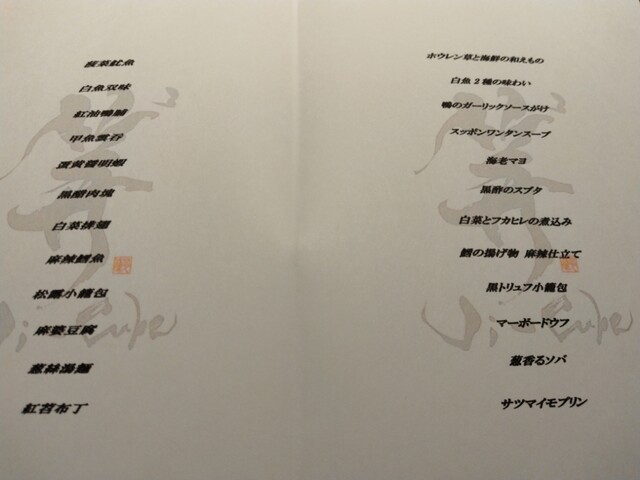 菠菜魷魚
白魚双味
紅油鴨脯
甲魚雲吞
蛋黄醤明蝦
黒醋肉塊
白菜排翅
麻辣鱈魚
松露小籠包
麻婆豆腐
葱絲湯麺
紅苕布丁
ホウレン草と海鮮の和えもの
白魚2種の味わい
鴨のガーリックソースがけ
スッポンワンタンスープ
海老マヨ
黒酢のスブタ
白菜とフカヒレの煮込み
鱈の揚げ物 麻辣仕立て
黒トリュフ小籠包
マーボードウフ
葱香るソバ
サツマイモプリン